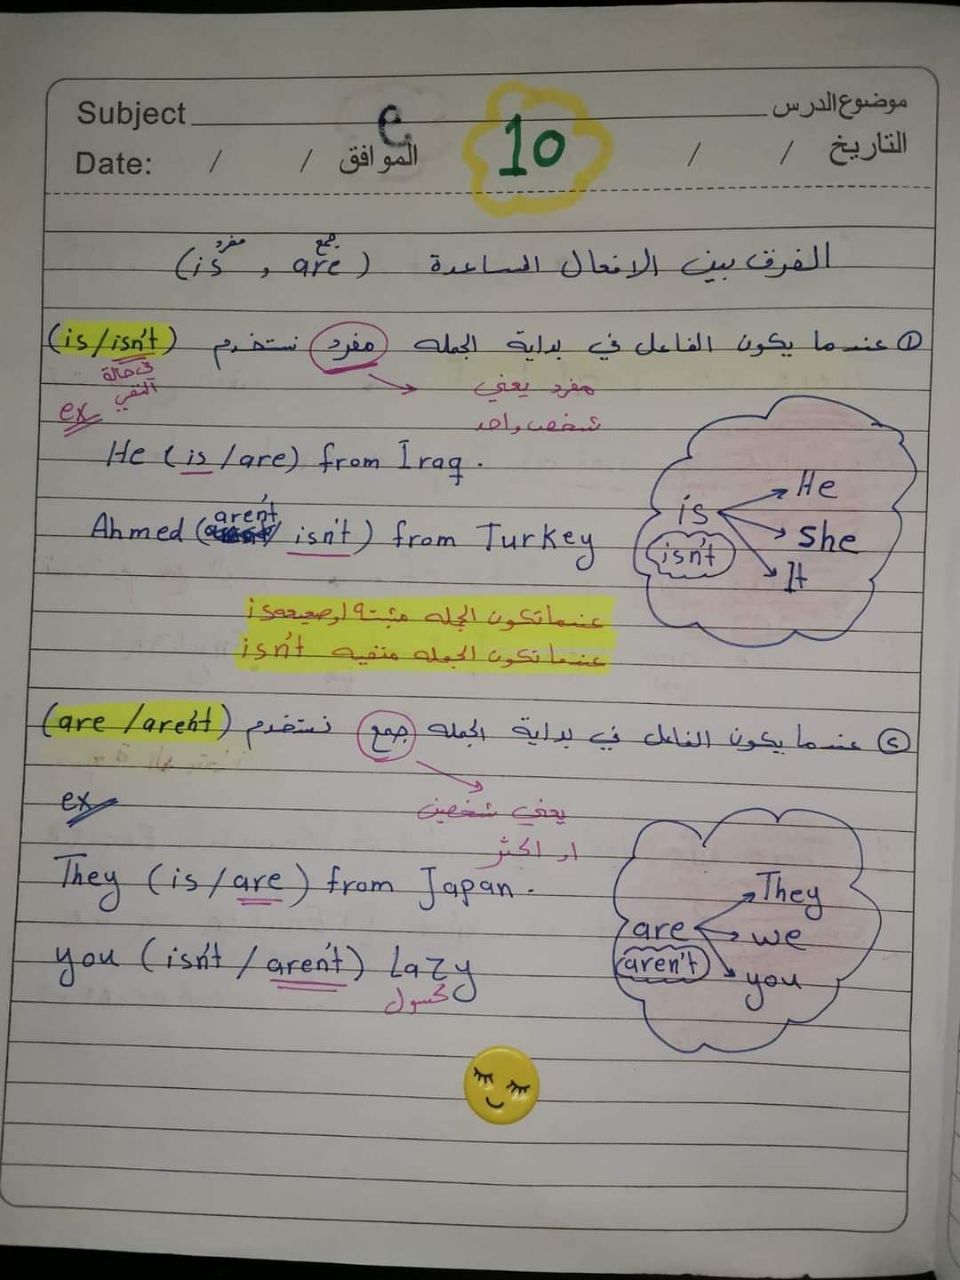 Subject موضوع الدرس
Date: / / الموافق / / التاريخ
e
10
مفرد جمع
الفرق بين الافعال المساعدة (is , are)
① عندما يكون الفاعل في بداية الجمله مفرد نستخدم (is/isn't)
في حالة النفي
مفرد يعني
شخص واحد
ex
He (is/are) from Iraq.
aren't
Ahmed ( / isn't) from Turkey
is
isn't
He
She
It
عندما تكون الجمله مثبتة او صحيحه is
عندما تكون الجمله منفيه isn't
② عندما يكون الفاعل في بداية الجمله جمع نستخدم (are /aren't)
يعني شخصين
او اكثر
ex
They (is/are) from Japan.
you (isn't / aren't) Lazy
كسول
are
aren't
They
we
you